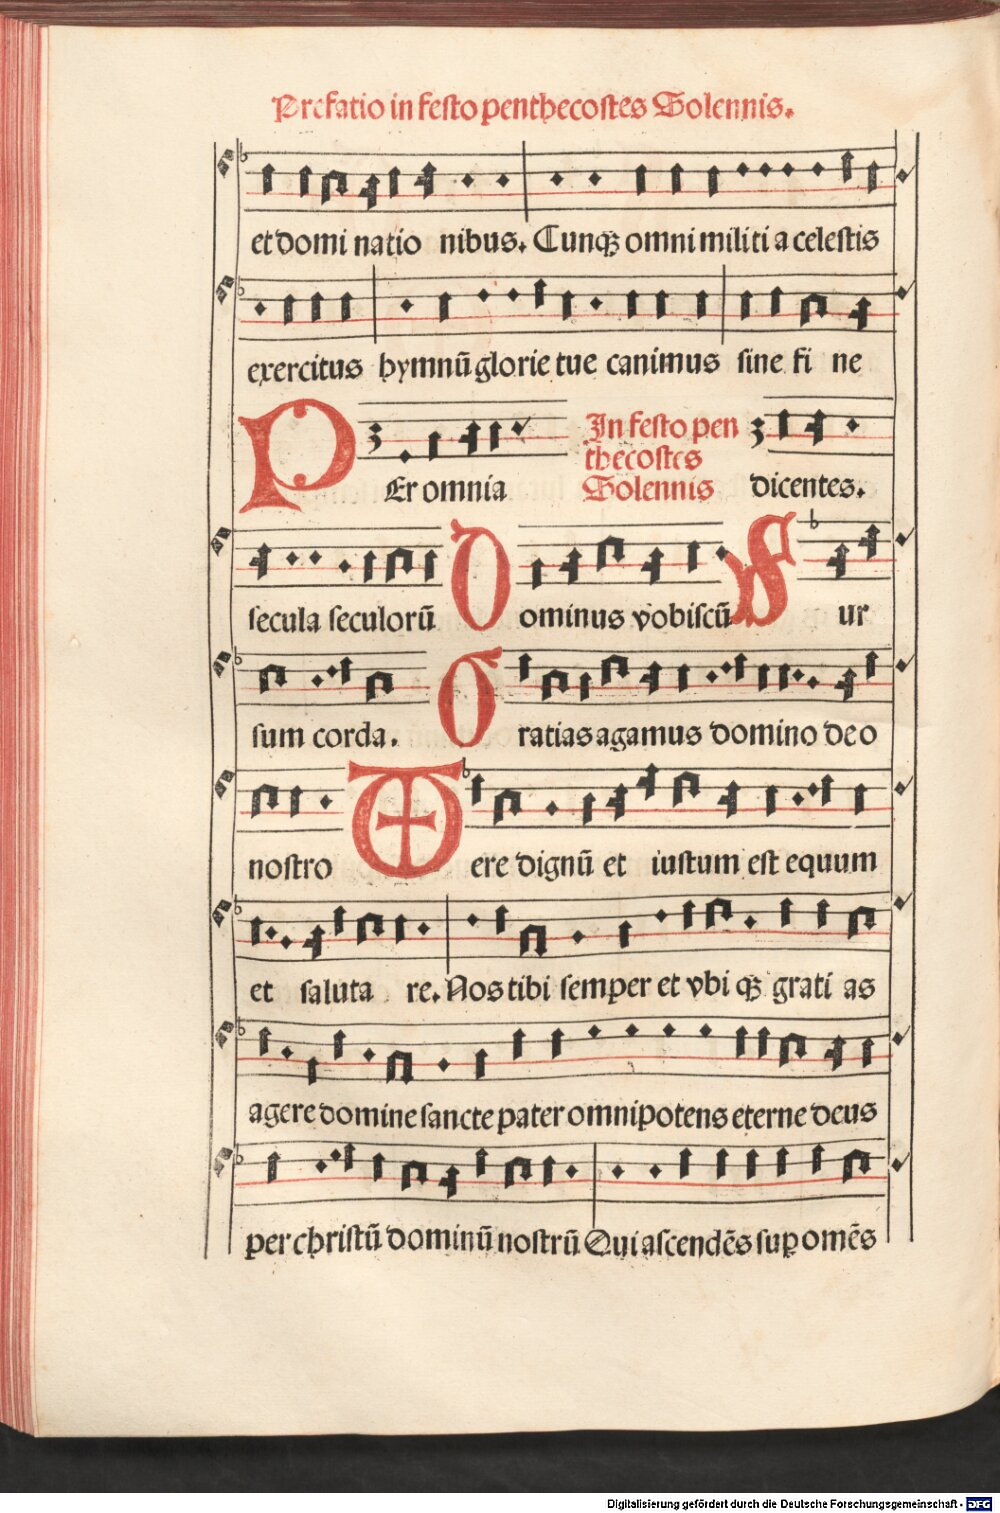 Prefatio in festo penthecostes Solennis.
et domi natio nibus. Cunqꝫ omni militi a celestis
exercitus hymnū glorie tue canimus sine fi ne
PEr omnia In festo pen
thecostes
Solennis dicentes.
secula seculorū Dominus vobiscū Sur
sum corda. Gratias agamus domino deo
nostro Vere dignū et iustum est equum
et saluta re. Nos tibi semper et vbi qꝫ grati as
agere domine sancte pater omnipotens eterne deus
per christū dominū nostrū Qui ascendēs suꝑ omēs
Digitalisierung gefördert durch die Deutsche Forschungsgemeinschaft - DFG